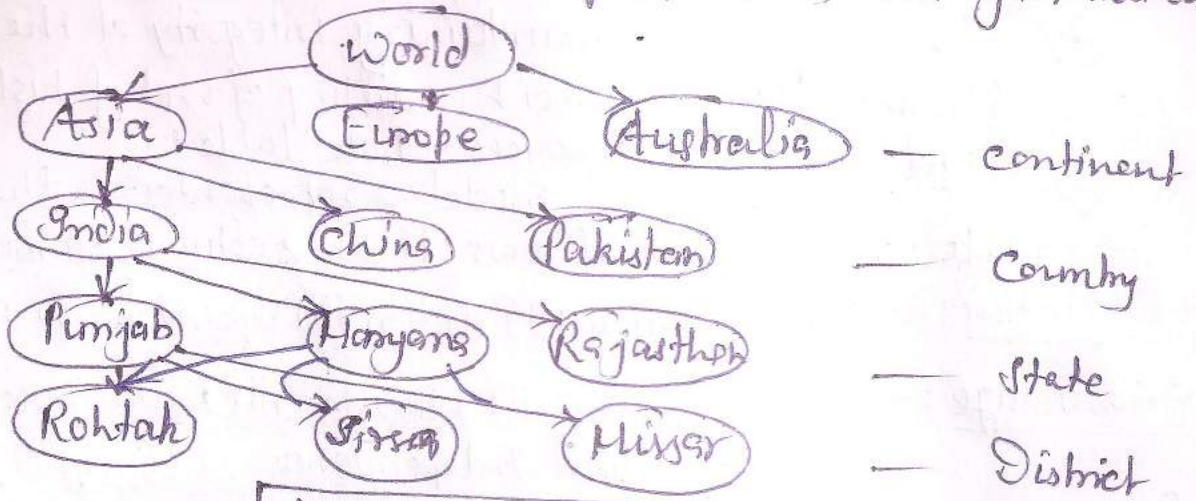 World
Asia Europe Australia — Continent
India China Pakistan — Country
Punjab Haryana Rajasthan — State
Rohtak Sirsa Hissar — District